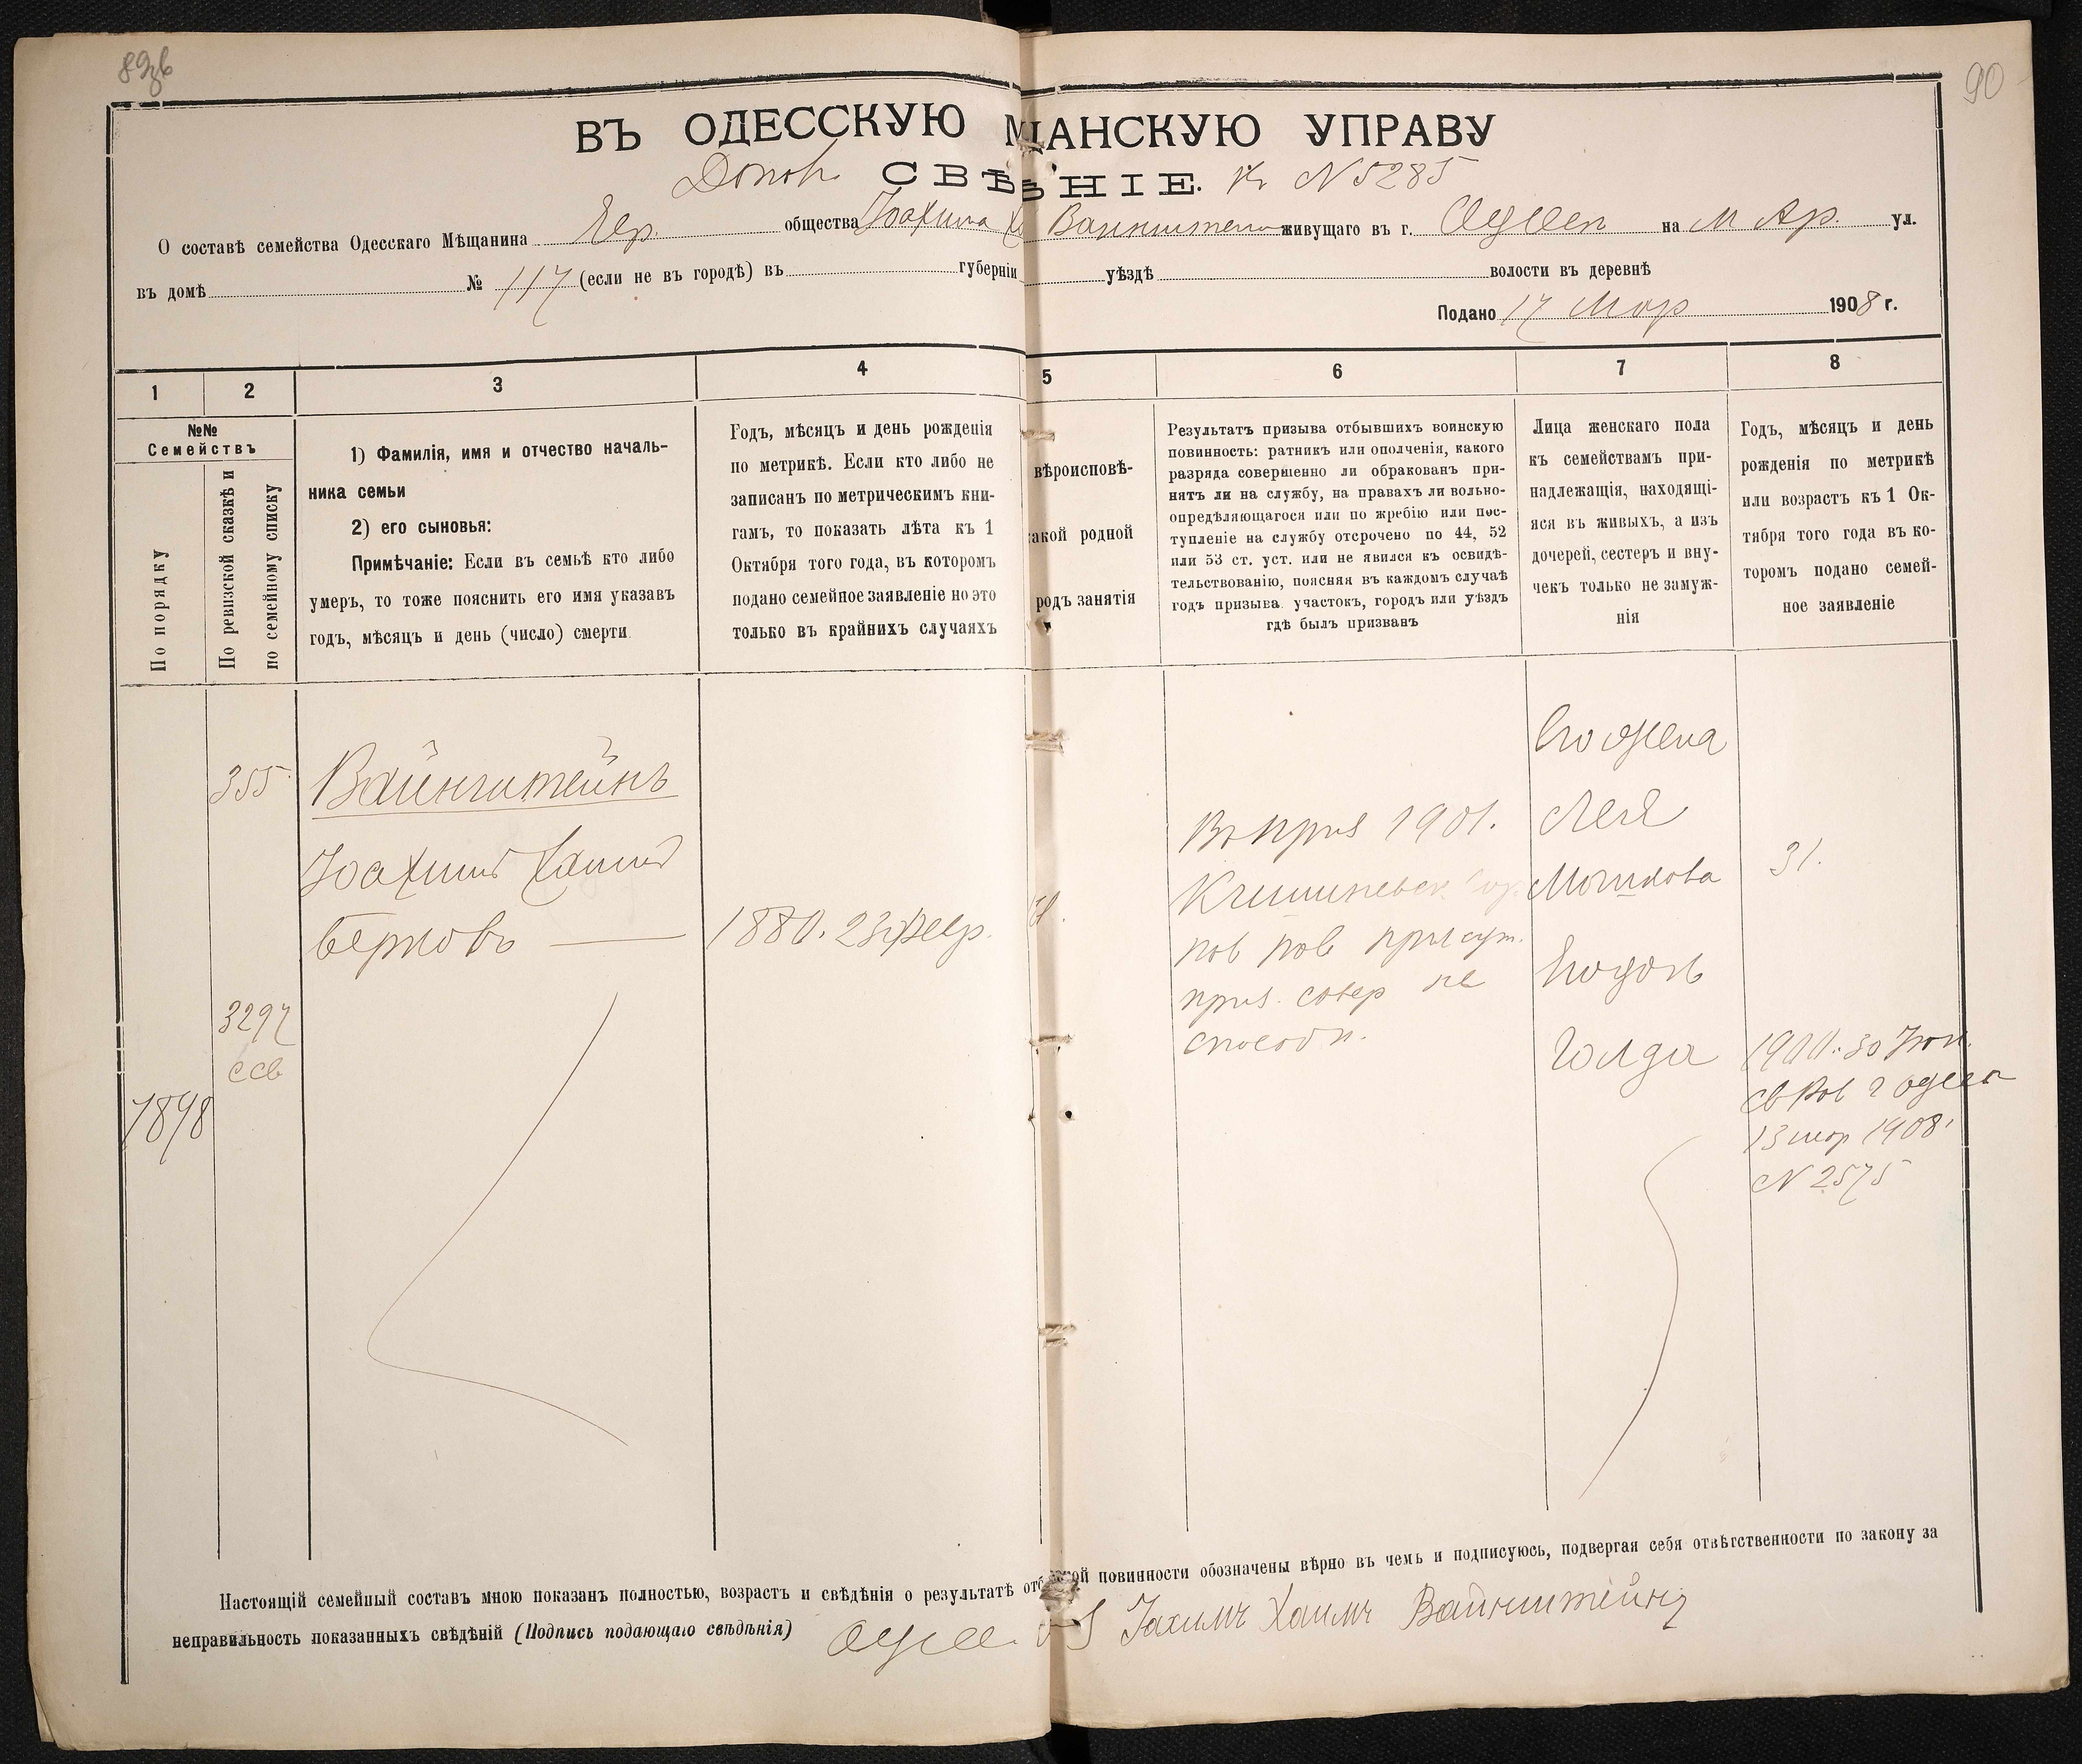 89зв
90
ВЪ ОДЕССКУЮ М ЩАНСКУЮ УПРАВУ
Допов. СВѢ НІЕ. къ № 5285
О составѣ семейства Одесскаго Мѣщанина Евр. общества Іоахима Х Вайнштейна живущаго въ г. Одессѣ на М Ар. ул.
въ домѣ № 117 (если не въ городѣ) въ губерніи уѣздѣ волости въ деревнѣ
Подано 17 Мар 1908 г.
1 2 3 4 5 6 7 8
№№
Семействъ
По порядку
По ревизской сказкѣ и
по семейному списку
1) Фамилія, имя и отчество началь-
ника семьи
2) его сыновья:
Примѣчаніе: Если въ семьѣ кто либо
умеръ, то тоже пояснить его имя указавъ
годъ, мѣсяцъ и день (число) смерти
Годъ, мѣсяцъ и день рожденія
по метрикѣ. Если кто либо не
записанъ по метрическимъ кни-
гамъ, то показать лѣта къ 1
Октября того года, въ которомъ
подано семейное заявленіе но это
только въ крайнихъ случаяхъ
вѣроисповѣ-
акой родной
родъ занятія
Результатъ призыва отбывшихъ воинскую
повинность: ратникъ или ополченія, какого
разряда совершенно ли обракованъ при-
нятъ ли на службу, на правахъ ли вольно-
опредѣляющагося или по жребію или пос-
тупленіе на службу отсрочено по 44, 52
или 53 ст. уст. или не явился къ освидѣ-
тельствованію, поясняя въ каждомъ случаѣ
годъ призыва участокъ, городъ или уѣздъ
гдѣ былъ призванъ
Лица женскаго пола
къ семействамъ при-
надлежащія, находящі-
яся въ живыхъ, а изъ
дочерей, сестеръ и вну-
чекъ только не замуж-
нія
Годъ, мѣсяцъ и день
рожденія по метрикѣ
или возрастъ къ 1 Ок-
тября того года въ ко-
торомъ подано семей-
ное заявленіе
355
Вайнштейнъ
Іоахимъ Хаимъ
Берковъ
3297
ссв
7898
1880. 23 февр.
Въ приз 1901.
Кишиневск.
пов прису т.
приз. совер не
способн.
Его жена
Лея
Мошкова
31.
Его дочь
Голда
1900. 30 Іюн.
св Рав г Одесс
13 мар 1908
№ 2575
Настоящій семейный составъ мною показанъ полностью, возрастъ и свѣдѣнія о результатѣ отб ской повинности обозначены вѣрно въ чемъ и подписуюсь, подвергая себя отвѣтственности по закону за
неправильность показанныхъ свѣдѣній (Подпись подающаго свѣдѣнія) Одесс. Іахимъ Хаимъ Вайнштейнъ